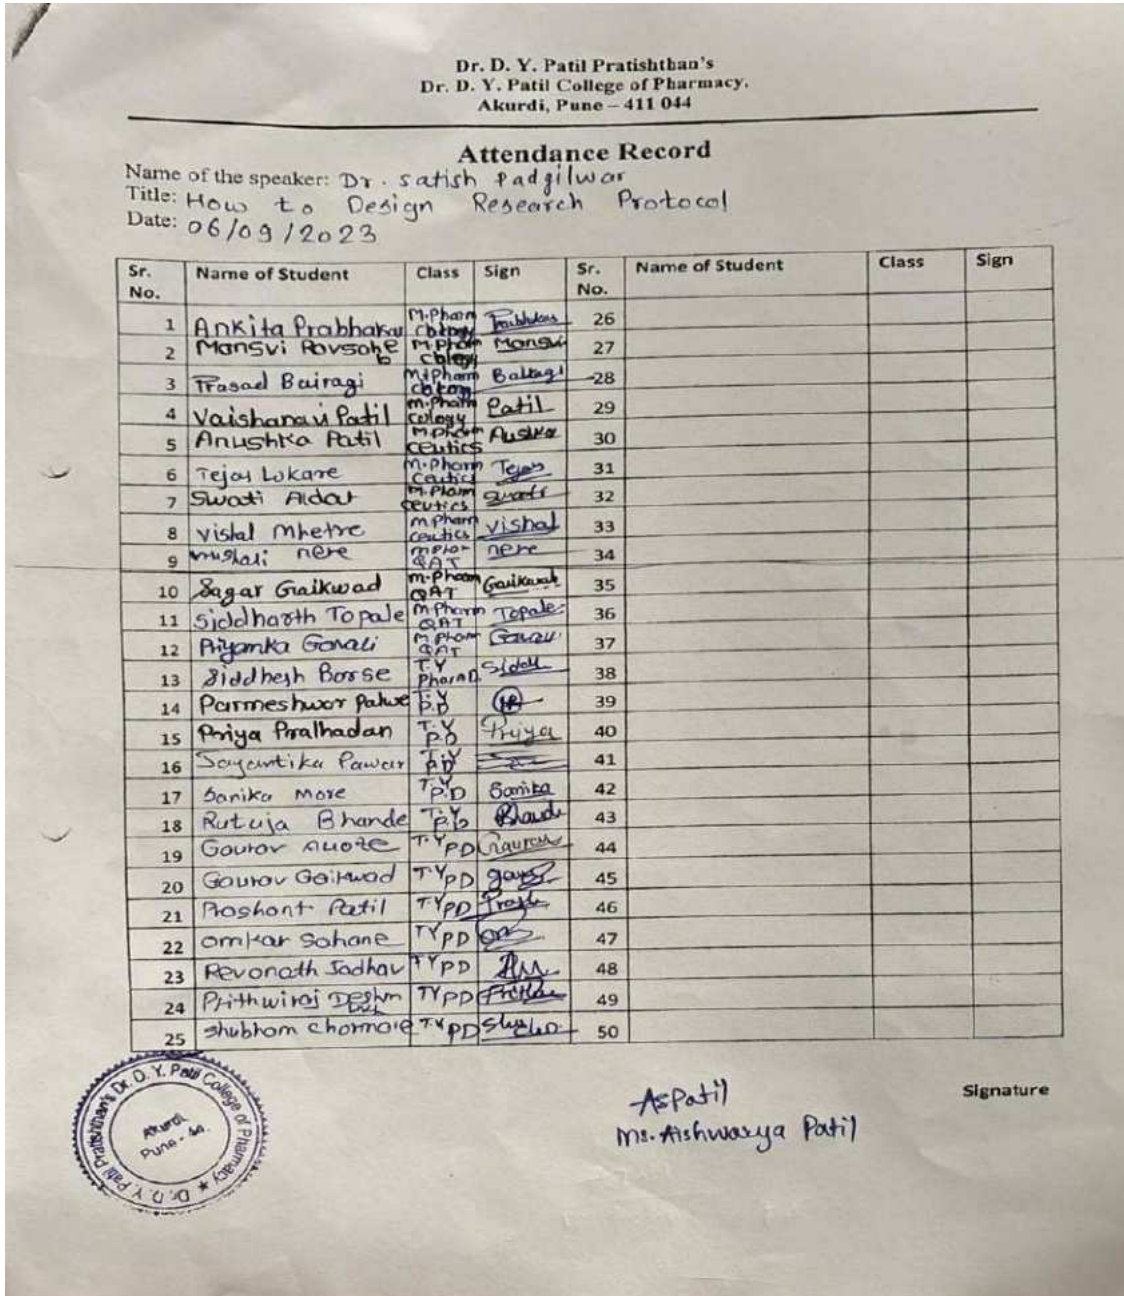 Dr. D. Y. Patil Pratishthan's
Dr. D. Y. Patil College of Pharmacy,
Akurdi, Pune – 411 044
Attendance Record
Name of the speaker: Dr. Satish Padgilwar
Title: How to Design Research Protocol
Date: 06/09/2023
Sr. No. Name of Student Class Sign Sr. No. Name of Student Class Sign
1 Ankita Prabhakar M.Pham cology 26
2 Mansvi Ravsaheb M.Pham cology Mansvi 27
3 Prasad Bairagi M.Pham Bairagi 28
4 Vaishanavi Patil M.Pham cology Patil 29
5 Anushka Patil M.Pham ceutics 30
6 Tejas Lokare M.Pham ceutics Tejas 31
7 Swati Aldar M.Pham ceutics Swati 32
8 Vishal Mhetre M.Pham ceutics Vishal 33
9 nere QAT nere 34
10 Sagar Gaikwad M.Pham QAT Gaikwad 35
11 Siddharth Topale M.Pham QAT Topale 36
12 Priyanka Gavali M.Pham QAT 37
13 Siddhesh Borse T.Y PharmD. Siddh 38
14 Parmeshwar T.Y P.D 39
15 Priya Pralhadan T.Y P.D Priya 40
16 Sayantika Pawar T.Y P.D 41
17 Sanika More T.Y P.D Sanika 42
18 Rutuja Bhande T.Y P.D 43
19 Gaurav T.Y PD Gaurav 44
20 Gaurav Gaikwad T.Y PD 45
21 Prashant Patil T.Y PD 46
22 Omkar Sahane TY PD 47
23 Revanath Jadhav TY PD 48
24 Prithwiraj TY PD 49
25 Shubham T.Y PD 50
Dr. D. Y. Patil Pratishthan's Dr. D. Y. Patil College of Pharmacy
Akurdi
Pune - 44.
Signature
ASPatil
Ms. Aishwarya Patil